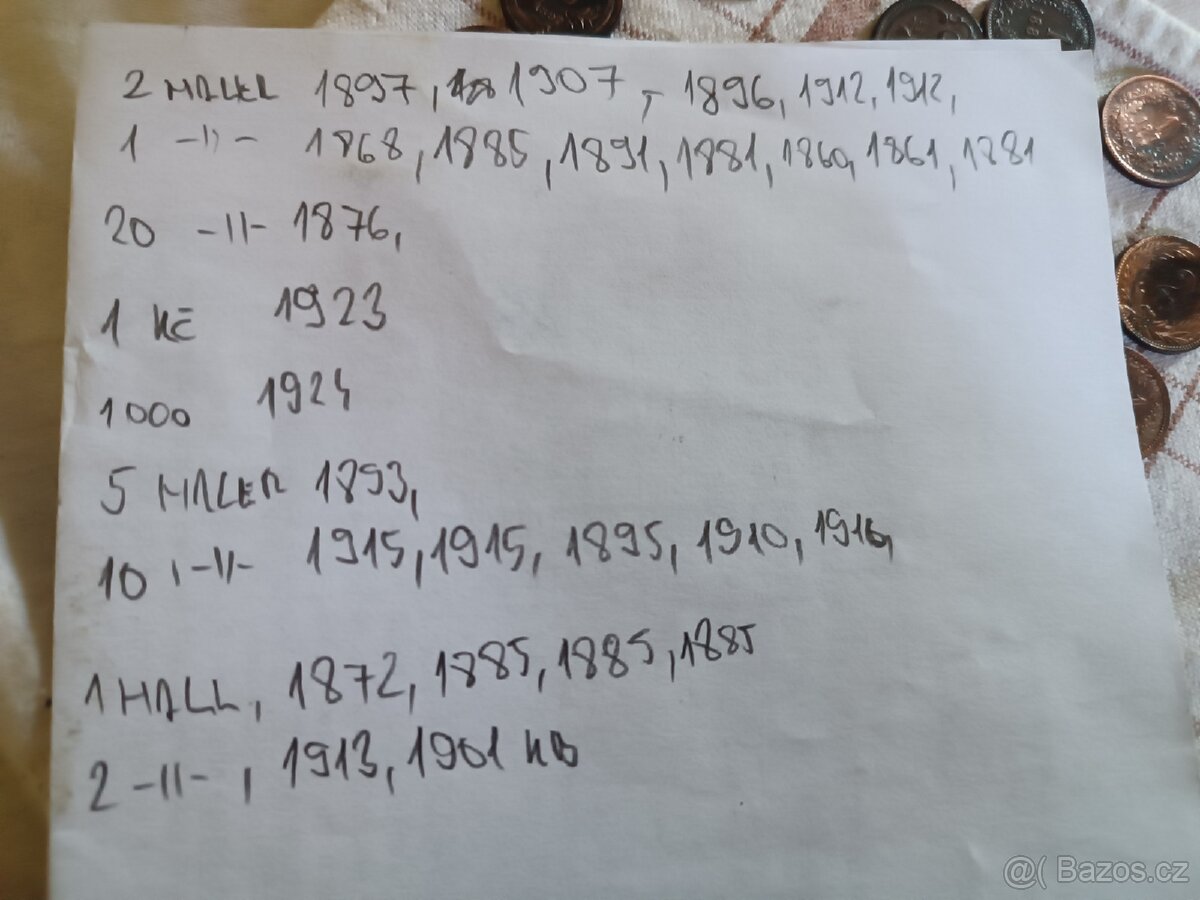 2 HALER 1897, 1907, - 1896, 1912, 1912,
1 -||- 1868, 1885, 1891, 1881, 1860, 1861, 1881
20 -||- 1876,
1 KČ 1923
1000 1924
5 HALER 1893,
10 -||- 1915, 1915, 1895, 1910, 1916,
1 HALL, 1872, 1885, 1885, 1885
2 -||-, 1913, 1901 KB
@( Bazos.cz